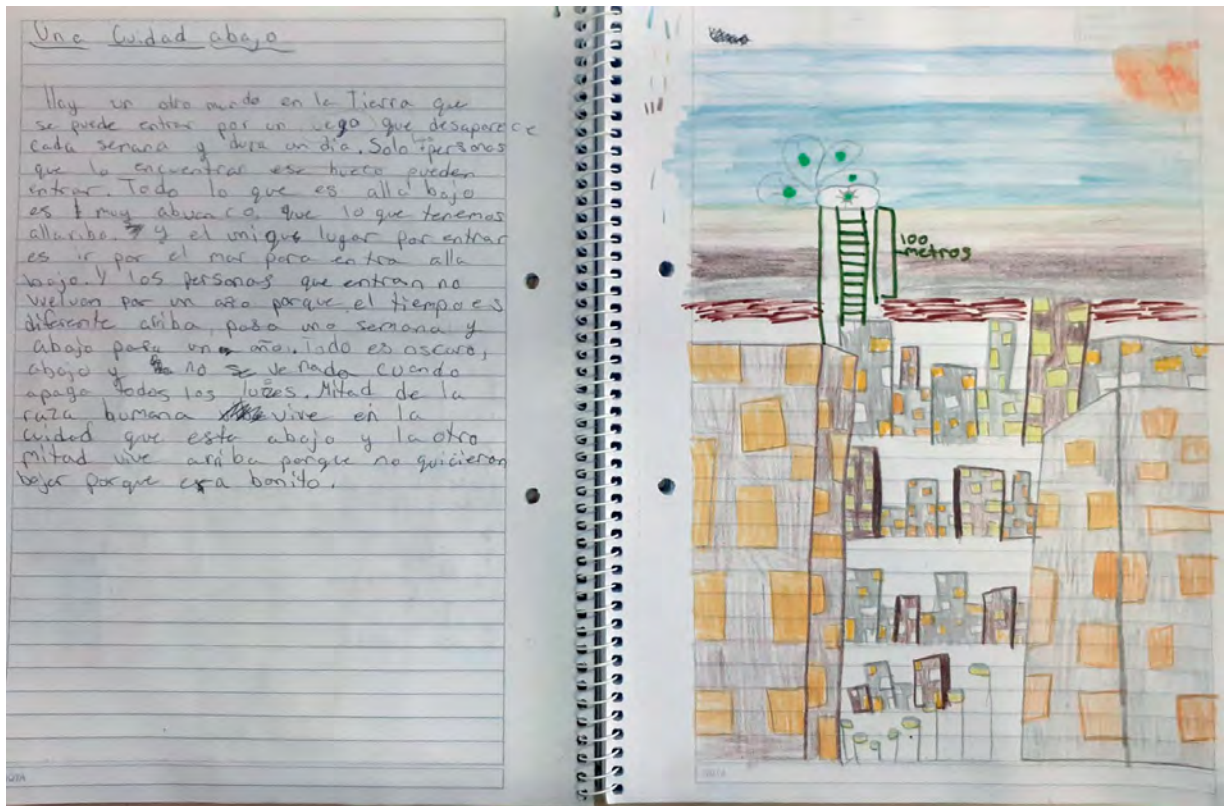 Una Cuidad abajo
Hay un otro mundo en la Tierra que
se puede entrar por un que desaparece
cada semana y dura un dia. Solo personas
que lo encuentran ese hueco pueden
entrar. Todo lo que es alla bajo
es muy que lo que tenemos
allariba. y el unique lugar por entrar
es ir por el mar para entra alla
bajo. Y los personas que entran no
vuelvan por un año porque el tiempo es
diferente ariba, pasa una semana y
abajo pasa un año. Todo es oscuro,
abajo y no se ve nada cuando
apaga todos las luzes. Mitad de la
raza humana vive en la
cuidad que esta abajo y la otra
mitad vive arriba porque no quicieron
bajar porque era bonito.
100
metros